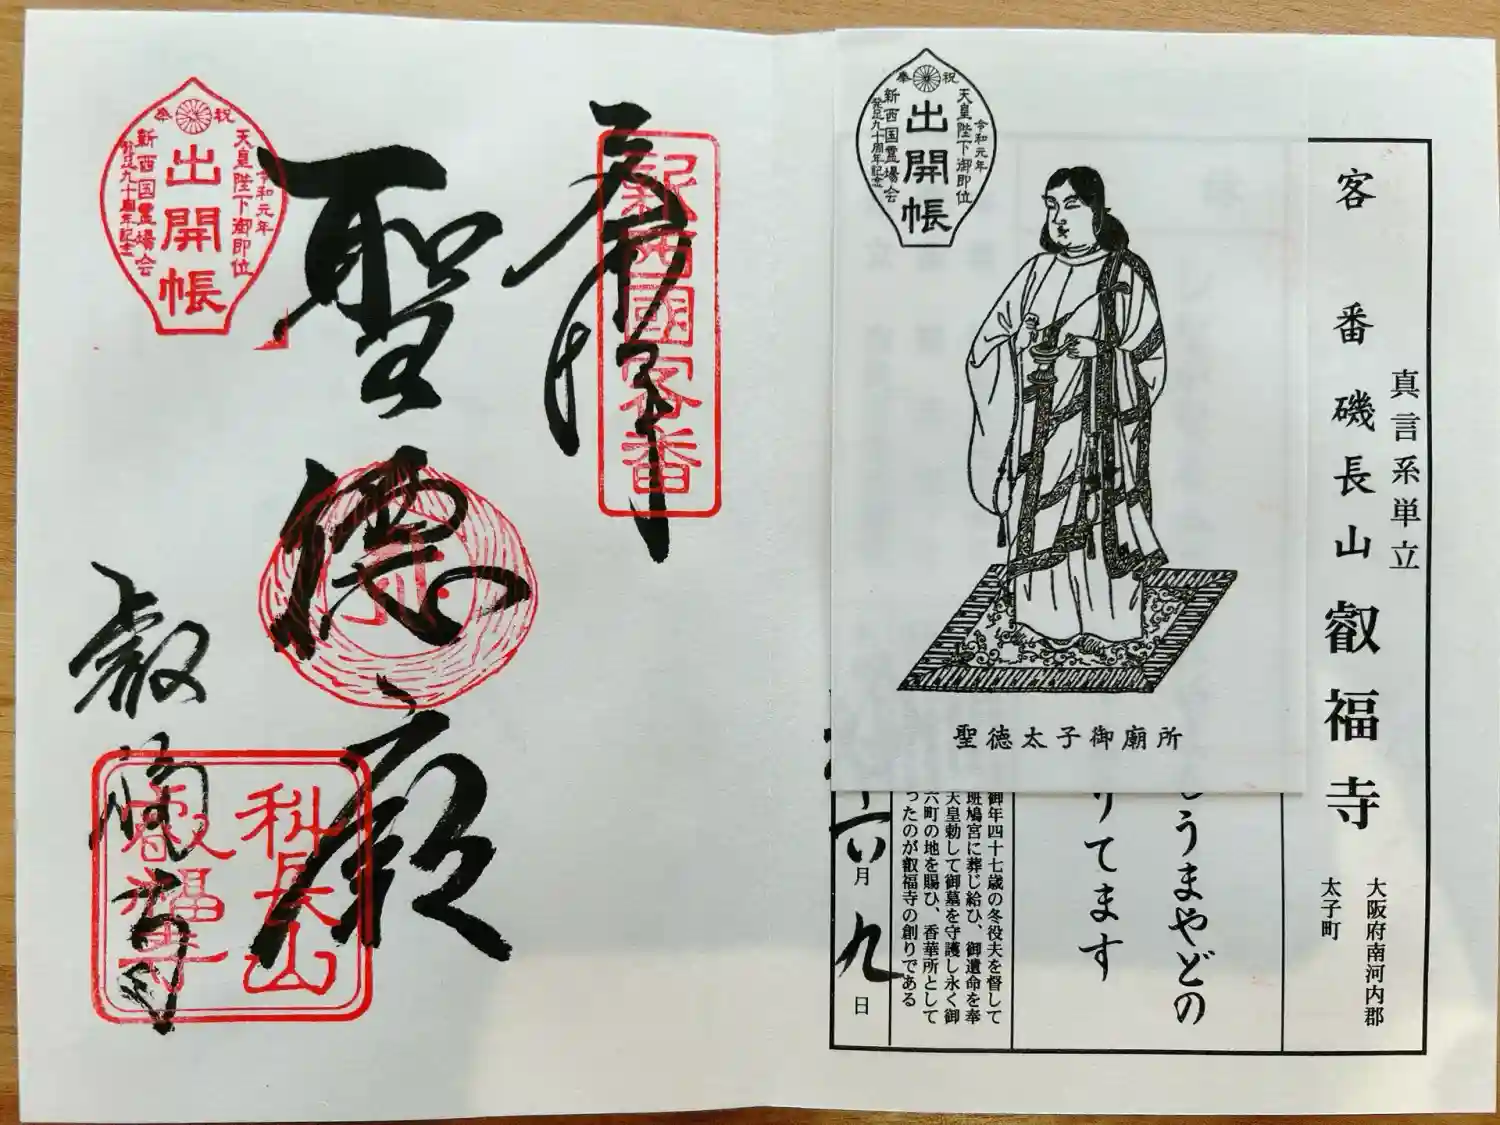 客番 磯長山 叡福寺
真言系単立
大阪府南河内郡
太子町
うまやどの
りてます
御年四十七歳の冬役夫を督して
班鳩宮に葬じ給ひ、御遺命を奉
天皇勅して御墓を守護し永く御
六町の地を賜ひ、香華所として
ったのが叡福寺の創りである
六月九日
奉祝
令和元年
天皇陛下御即位
出開帳
新西国霊場会
発足九十周年記念
聖徳太子御廟所
奉拝
新西國客番
聖徳廟
叡福寺
科長山
叡福寺
奉祝
令和元年
天皇陛下御即位
出開帳
新西国霊場会
発足九十周年記念